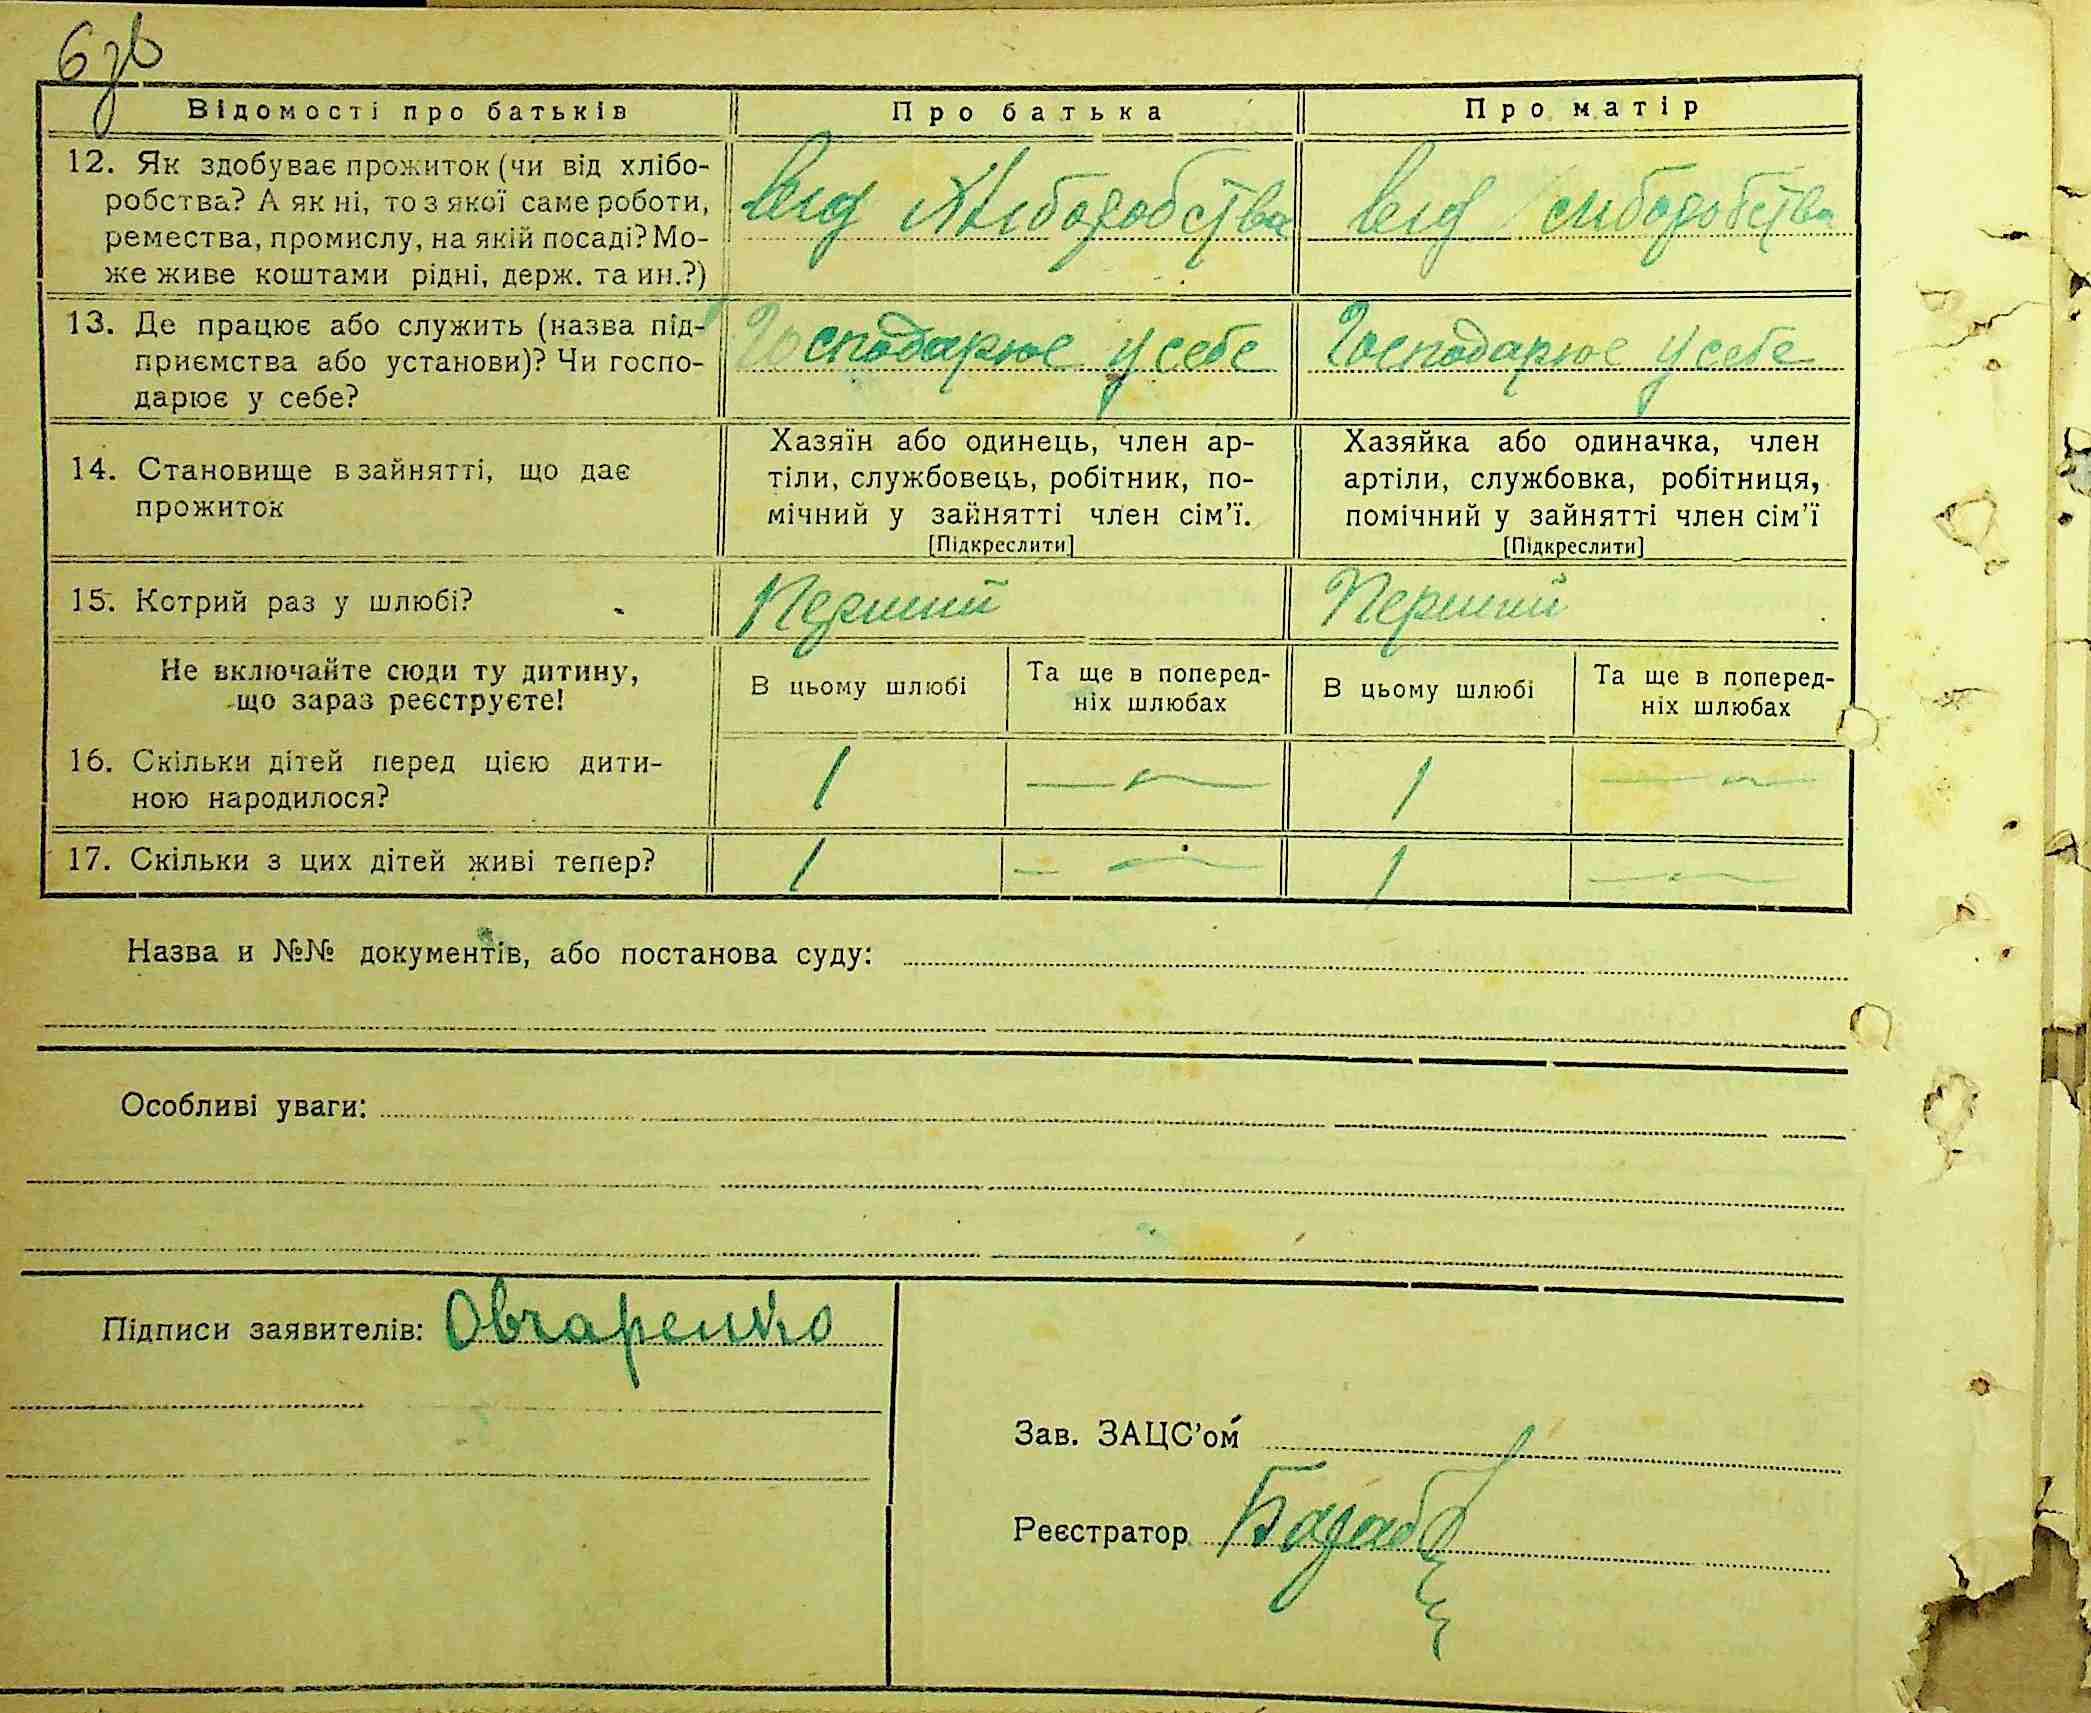 6зв
Відомості про батьків Про батька Про матір
12. Як здобуває прожиток (чи від хлібо-
робства? А як ні, то з якої саме роботи,
ремества, промислу, на якій посаді? Мо-
же живе коштами рідні, держ. та ин.?)
від хліборобства від хліборобства
13. Де працює або служить (назва під-
приємства або установи)? Чи госпо-
дарює у себе?
Господарює у себе Господарює у себе
14. Становище в зайнятті, що дає
прожиток
Хазяїн або одинець, член ар-
тіли, службовець, робітник, по-
мічний у зайнятті член сім’ї.
[Підкреслити]
Хазяйка або одиначка, член
артіли, службовка, робітниця,
помічний у зайнятті член сім’ї
[Підкреслити]
15. Котрий раз у шлюбі? Перший Перший
Не включайте сюди ту дитину,
що зараз реєструєте!
В цьому шлюбі
Та ще в поперед-
ніх шлюбах
В цьому шлюбі
Та ще в поперед-
ніх шлюбах
16. Скільки дітей перед цією дити-
ною народилося?
1 — 1 —
17. Скільки з цих дітей живі тепер? 1 — 1 —
Назва и №№ документів, або постанова суду:
Особливі уваги:
Підписи заявителів: Овчаренко
Зав. ЗАЦС’ом
Реєстратор